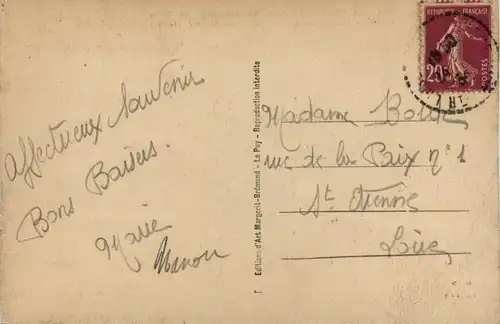 Affectueux Souvenir
Bons Baisers.
Marie
Manon
Editions d'Art Margerit-Brémond - Le Puy - Reproduction interdite
REPUBLIQUE FRANCAISE
20c
POSTES
Madame
rue de la Paix n° 1
St. Etienne
Loire